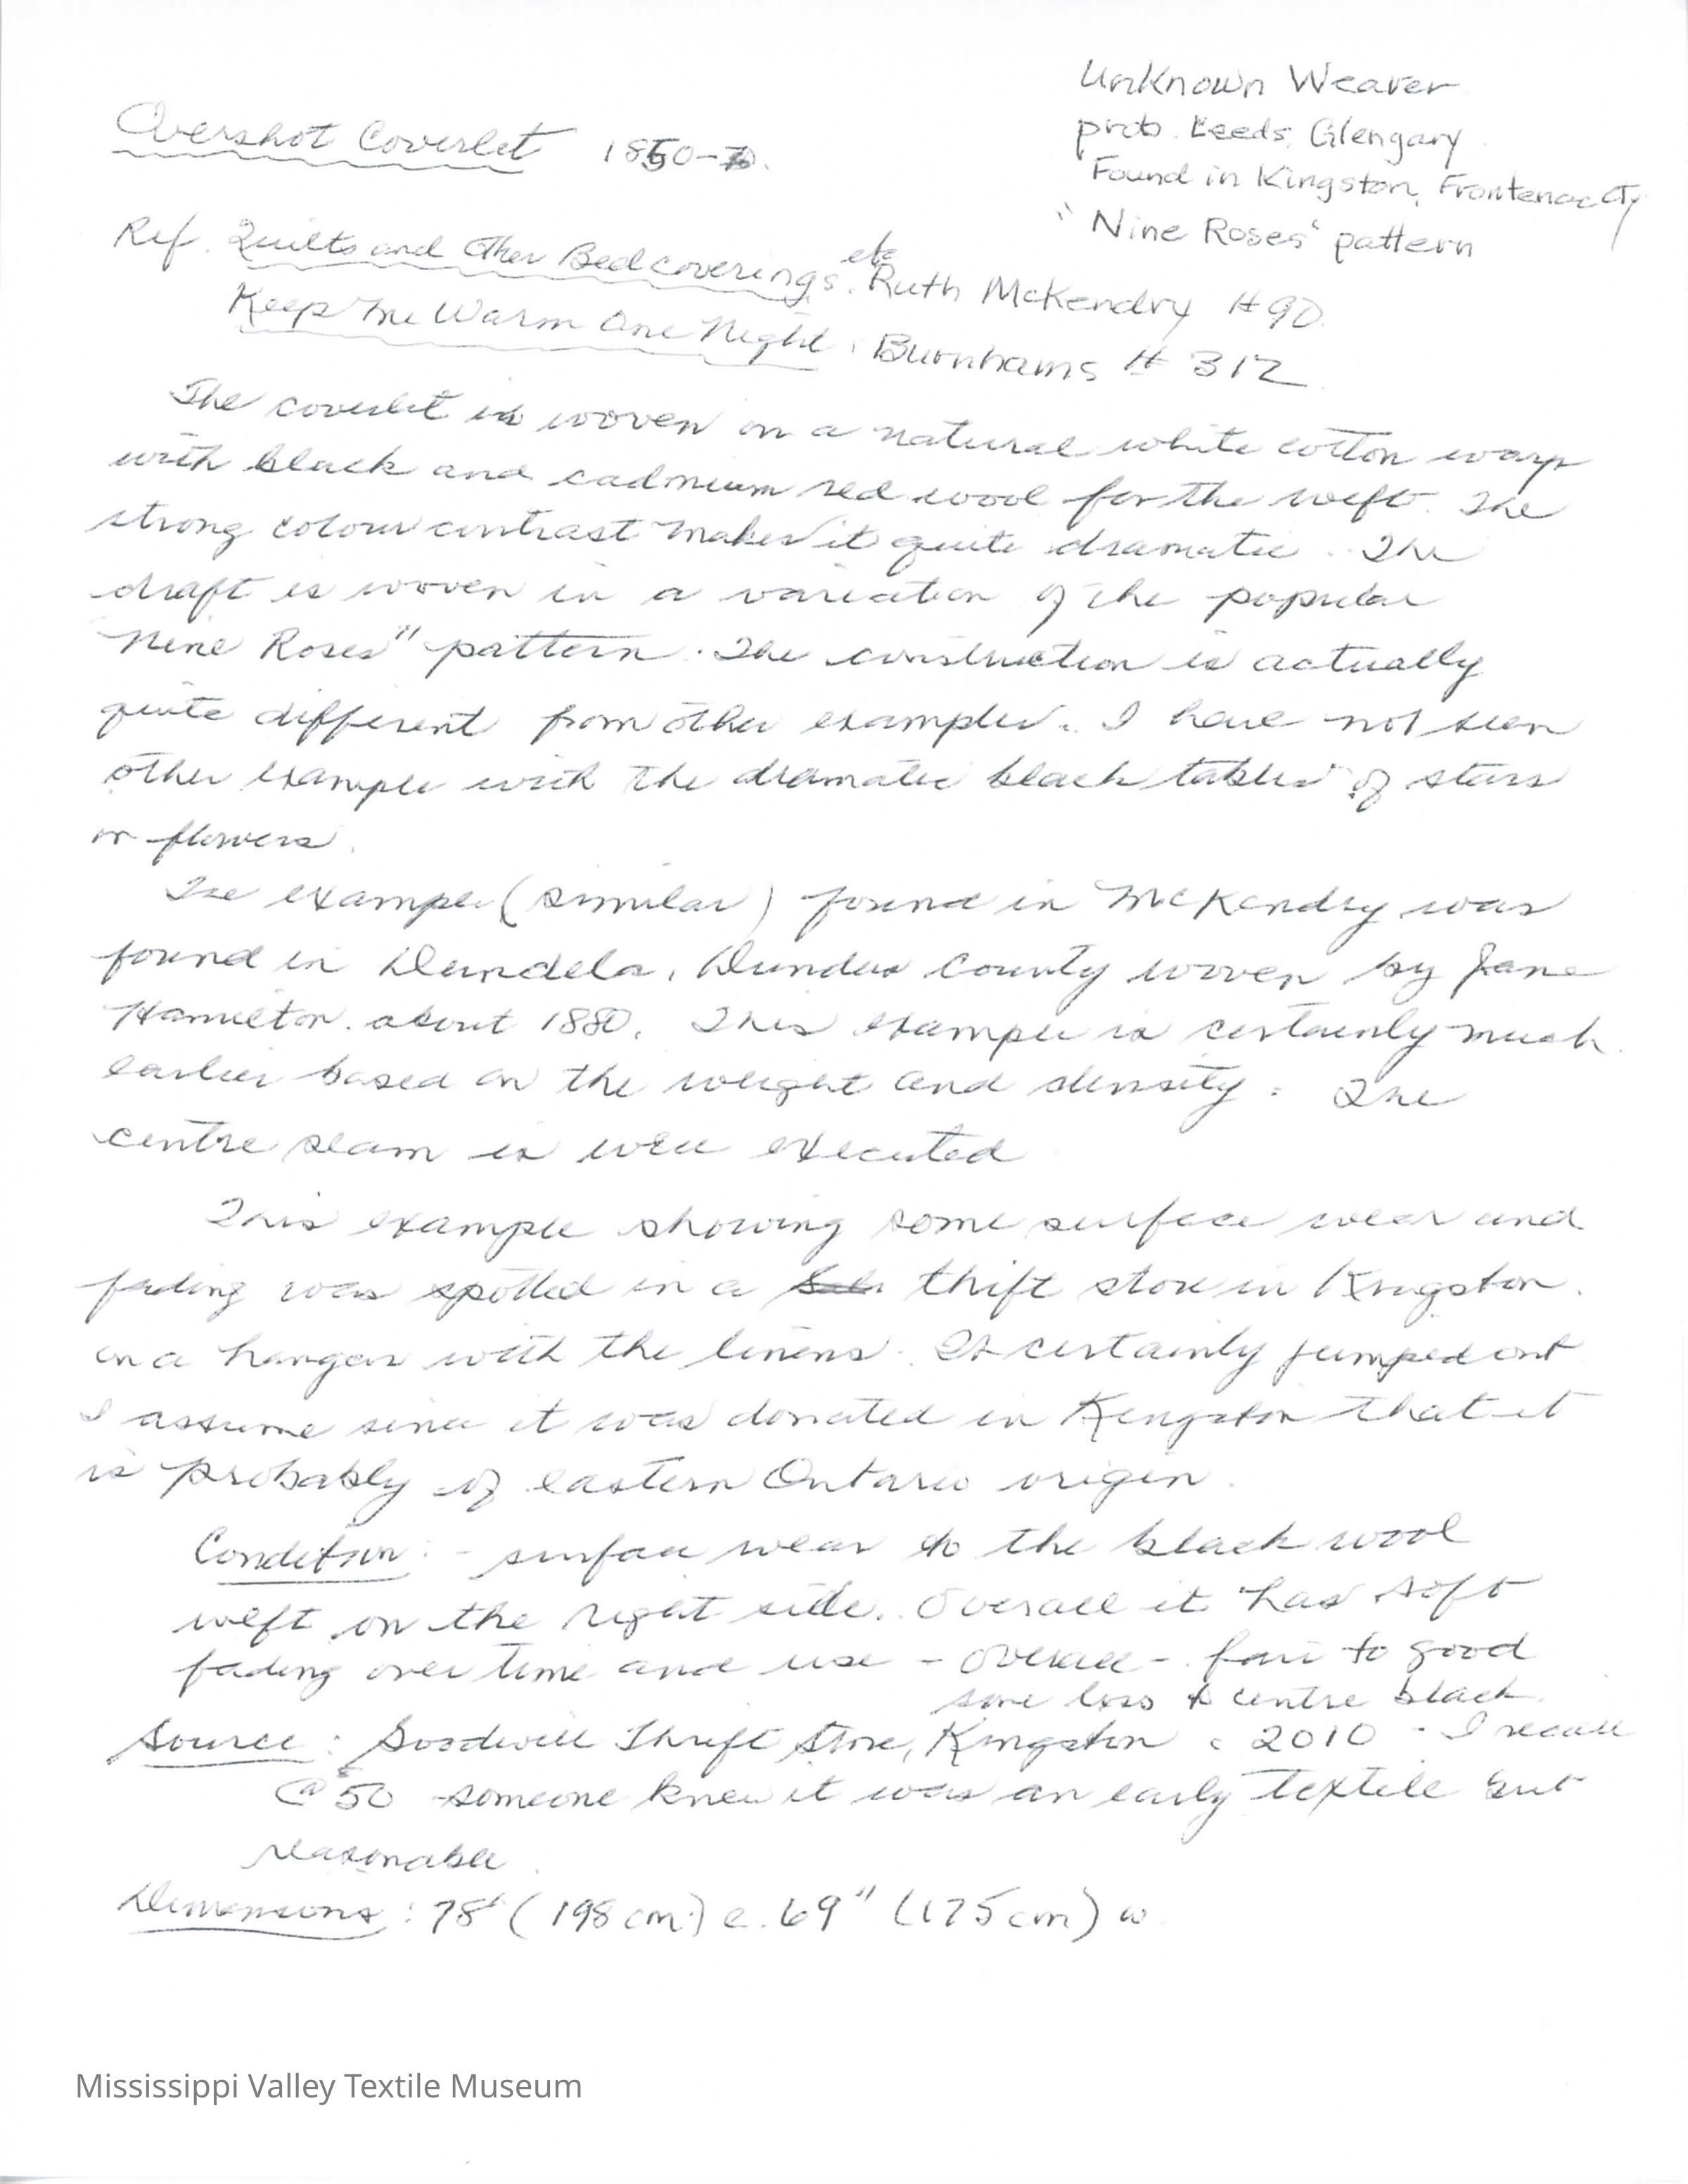 Unknown Weaver
prob. Leeds, Glengary
Found in Kingston, Frontenac Cty
"Nine Roses" pattern
Overshot Coverlet 1850-70.
Ref. Quilts and Other Bedcoverings etc. Ruth McKendry #90.
Keep Me Warm One Night, Burnhams #312
The coverlet is woven on a natural white cotton warp
with black and cadmium red wool for the weft. The
strong colour contrast makes it quite dramatic. The
draft is woven in a variation of the popular
"Nine Roses" pattern. The construction is actually
quite different from other examples. I have not seen
other example with the dramatic black tables of stars
or flowers.
The example (similar) found in McKendry was
found in Dundela, Dundas County woven by Jane
Hamilton about 1880. This example is certainly much
earlier based on the weight and density. The
centre seam is well executed
This example showing some surface wear and
fading was spotted in a thrift store in Kingston.
on a hanger with the linens. It certainly jumped out
I assume since it was donated in Kingston that it
is probably of eastern Ontario origin.
Condition: - surface wear to the black wool
weft on the right side. Overall it has soft
fading over time and use - overall - fair to good
some loss to centre black.
Source: Goodwill Thrift Store, Kingston c 2010 - I recall
@ $50 someone knew it was an early textile but
reasonable.
Dimensions: 78" (198 cm.) l. 69" (175 cm) w.
Mississippi Valley Textile Museum